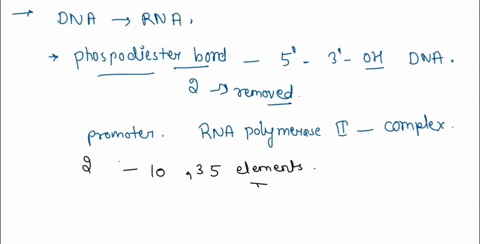 → DNA → RNA.
→ phospodiester bond — 5' - 3' - OH DNA.
2 → removed.
promoter. RNA polymerase II — complex.
2 - 10 , 35 elements.